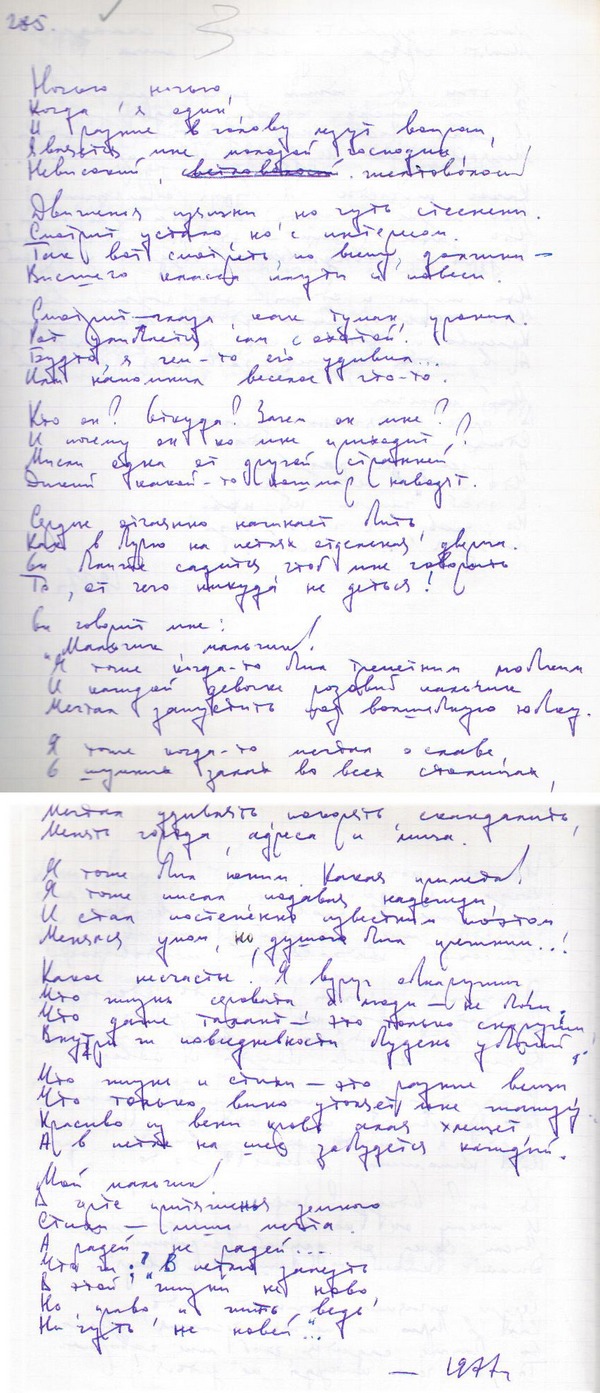 285.
3
Ночью ночью,
Когда я один
И разные в голову лезут вопросы,
Является мне молодой господин
Невысокий, светловолосый. желтоволосый
Движенья изящны, но чуть стеснены.
Смотрит устало, но с интересом.
Так вот смотреть, по всему, должны —
Высшего класса плуты и повесы.
Смотрит глаза, как туман,
Рот улыбается сам с охотой.
Будто, я чем-то его удивил...
Или напомнил веселое что-то.
Кто он? Откуда? Зачем он мне?
И почему он ко мне приходит?
Мысли одна от другой странней
Дикий какой-то кошмар наводят.
Сердце отчаянно начинает бить
Как в бурю на петлях отделенная дверца.
Он ближе садится чтоб мне говорить
То, от чего никуда не деться!
Он говорит мне:
"Мальчик, мальчик!
"Я тоже когда-то был трепетным любящим
И каждой девочке розовый пальчик
Мечтал запустить под волшебную юбку.
Я тоже когда-то мечтал о славе
О шумных залах во всех столицах,
Мечтал удивлять, покорять, скандалить,
Менять города, адреса и лица.
Я тоже был юным. Какая примета!
Я тоже писал подавая надежды,
И стал постепенно известным поэтом
Менялся умом, но душою был прежним..!
Какое несчастье. Я вдруг обнаружил
Что жизнь сероватa а люди — не боги,
Что даже талант — это только снаружи,
Внутри ж повседневности будень убогий,
Что жизнь и стихи — это разные вещи
Что только вино утоляет мне жажду
Красиво из вены кровь алая хлещет
А в петле на шее забудется каждый.
Мой мальчик!
В черте притяженья земного
Стихи — лишь мечта.
А радей не радей...
Что ж? В петлю залезть
В этой "жизни не ново,
Но, право и жить ведь
Ни чуть не новей"...
— 1977г